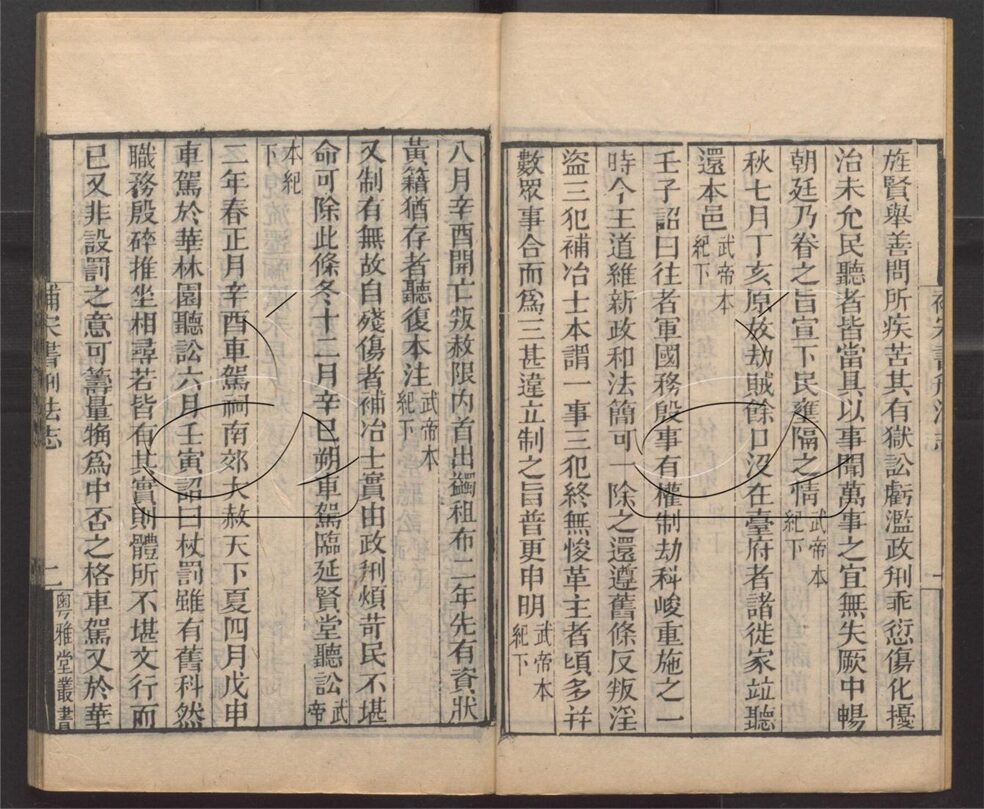 旌賢舉善問所疾苦其有獄訟虧濫政刑乖愆傷化擾
治未允民聽者皆當具以事聞萬事之宜無失厥中暢
朝廷乃眷之旨宣下民壅隔之情武帝本紀下
秋七月丁亥原放劫賊餘口沒在臺府者諸徙家竝聽
還本邑武帝本紀下
壬子詔曰往者軍國務殷事有權制劫科峻重施之一
時今王道維新政和法簡可一除之還遵舊條反叛淫
盜三犯補冶士本謂一事三犯終無悛革主者頃多幷
數眾事合而爲三甚違立制之旨普更申明武帝本紀下
八月辛酉開亡叛赦限內首出蠲租布二年先有資狀
黃籍猶存者聽復本注武帝本紀下
又制有無故自殘傷者補冶士實由政刑煩苛民不堪
命可除此條冬十二月辛巳朔車駕臨延賢堂聽訟武帝
本紀下
二年春正月辛酉車駕祠南郊大赦天下夏四月戊申
車駕於華林園聽訟六月壬寅詔曰杖罰雖有舊科然
職務殷碎推坐相尋若皆有其實則體所不堪文行而
已又非設罰之意可籌量觕爲中否之格車駕又於華
補宋書刑法志
二
粵雅堂叢書